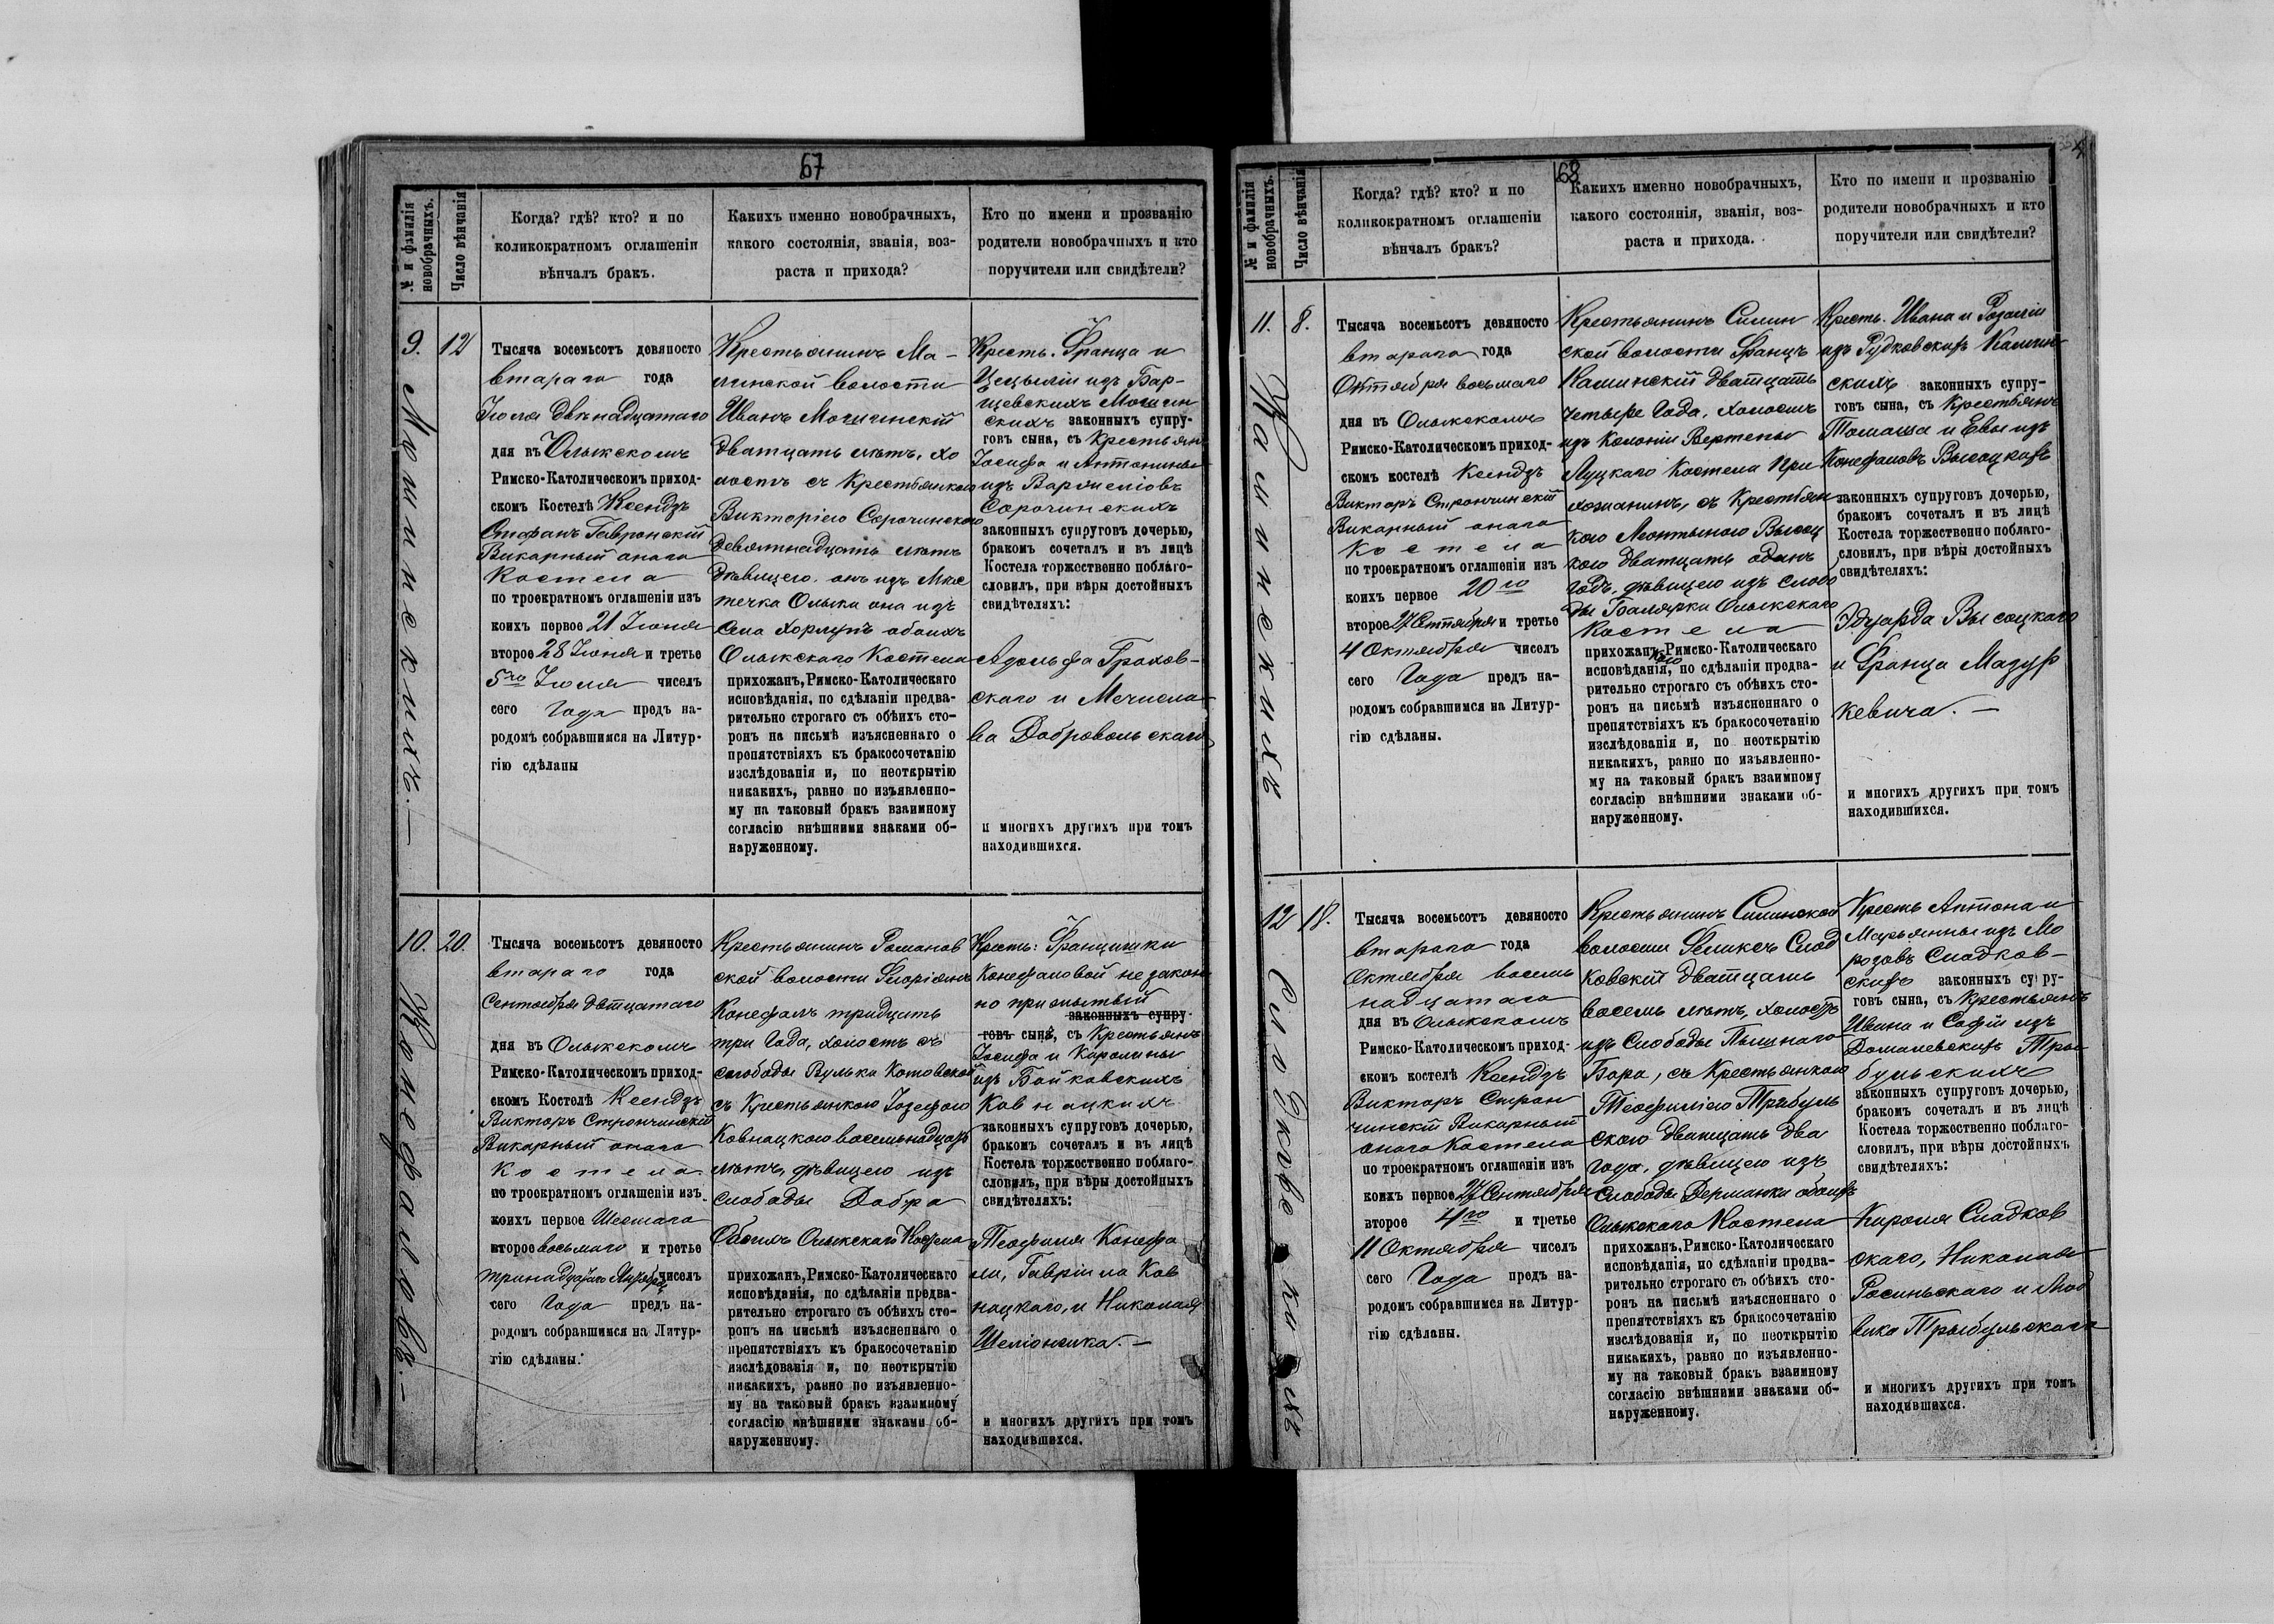 67
№ и фамилія новобрачныхъ.
Число вѣнчанія
Когда? гдѣ? кто? и по
коликократномъ оглашеніи
вѣнчалъ бракъ.
Какихъ именно новобрачныхъ,
какого состоянія, званія, воз-
раста и прихода?
Кто по имени и прозванію
родители новобрачныхъ и кто
поручители или свидѣтели?
9.
12
Тысяча восемьсотъ девяносто
втараго года
Іюля двѣнадцатаго
дня въ Олыкскомъ
Римско-Католическомъ приход-
скомъ Костелѣ Ксендзъ
Стефанъ Гавронскій
Викарный онаго
Костела
по троекратномъ оглашеніи изъ
коихъ первое 21 Іюня
второе 28 Іюня и третье
5го Іюля чиселъ
сего Года предъ на-
родомъ собравшимся на Литур-
гію сдѣланы
Крестьянинъ Ма-
линской волости
Иванъ
Дватцать лѣтъ, хо
лостъ съ Крестьянкою
Викторіею Сорочинскою
девятнадцать лѣтъ
дѣвицею. онъ изъ Мѣс
течка Олыки она изъ
Села Хорлупъ обоихъ
Олыкскаго Костела
прихожанъ, Римско-Католическаго
исповѣданія, по сдѣланіи предва-
рительно строгаго съ обѣихъ сто-
ронъ на письмѣ изъясненнаго о
препятствіяхъ къ бракосочетанію
изслѣдованія и, по неоткрытію
никакихъ, равно по изъявленно-
му на таковый бракъ взаимному
согласію внѣшними знаками об-
наруженному.
Кресть. Франца и
Цецыліи изъ Бар-
щевскихъ
скихъ законныхъ супру-
говъ сына, съ Крестьян
Іосифа и Антонины
изъ
Сорочинскихъ
законныхъ супруговъ дочерью,
бракомъ сочеталъ и въ лицѣ
Костела торжественно поблаго-
словилъ, при вѣры достойныхъ
свидѣтеляхъ:
Адольфа Грохов-
скаго и Мечисла-
ва Добровольскаго
и многихъ другихъ при томъ
находившихся.
10.
20.
Конефаловъ. –
Тысяча восемьсотъ девяносто
втараго года
Сентября дватцатаго
дня въ Олыкскомъ
Римско-Католическомъ приход-
скомъ Костелѣ Ксендзъ
Викторъ Стрончинскій
Викарный онаго
Костела
по троекратномъ оглашеніи изъ
коихъ первое Шестаго
второе восьмаго и третье
чиселъ
сего Года предъ на-
родомъ собравшимся на Литур-
гію сдѣланы.
Крестьянинъ Романов
ской волости Флоріянъ
Конефалъ тридцать
три Года, холостъ съ
слободы Вулька Котовская
съ Крестьянкою Іозефою
Ковнацкою восемьнадцать
лѣтъ, дѣвицею изъ
слободы Добра
Обоихъ Олыкскаго Костела
прихожанъ, Римско-Католическаго
исповѣданія, по сдѣланіи предва-
рительно строгаго съ обѣихъ сто-
ронъ на письмѣ изъясненнаго о
препятствіяхъ къ бракосочетанію
изслѣдованія и, по неоткрытію
никакихъ, равно по изъявленно-
му на таковый бракъ взаимному
согласію внѣшними знаками об-
наруженному.
Кресть: Францишки
Конефаловой не закон
но прижытый
законныхъ супру-
говъ сына, съ Крестьянъ
Іосифа и Каролины
изъ Байковскихъ
Ковнацкихъ
законныхъ супруговъ дочерью,
бракомъ сочеталъ и въ лицѣ
Костела торжественно поблаго-
словилъ, при вѣры достойныхъ
свидѣтеляхъ:
Теофиля Конефа
ля, Гавріила Ков
нацкаго, и Николая
и многихъ другихъ при томъ
находившихся.
168
№ и фамилія новобрачныхъ.
Число вѣнчанія
Когда? гдѣ? кто? и по
коликократномъ оглашеніи
вѣнчалъ бракъ?
Какихъ именно новобрачныхъ,
какого состоянія, званія, воз-
раста и прихода.
Кто по имени и прозванію
родители новобрачныхъ и кто
поручители или свидѣтели?
11.
8.
Каминскихъ
Тысяча восемьсотъ девяносто
втараго года
Октября восьмаго
дня въ Олыкскомъ
Римско-Католическомъ приход-
скомъ костелѣ Ксендзъ
Викторъ Стрончинскій
Викарный онаго
Костела
по троекратномъ оглашеніи изъ
коихъ первое 20го
второе 27 Сентября и третье
4 Октября чиселъ
сего Года предъ на-
родомъ собравшимся на Литур-
гію сдѣланы.
Крестьянинъ Силин
ской волости Францъ
Каминскій дватцать
четыре Года, холостъ
изъ Колоніи Вертепы
Луцкаго Костела При
хожанинъ, съ Крестьян
кою Леонтыною Высоц
кою дватцать одинъ
Годъ, дѣвицею изъ слобо
ды Балярки Олыкскаго
Костела
прихожанкою Римско-Католическаго
исповѣданія, по сдѣланіи предва-
рительно строгаго съ обѣихъ сто-
ронъ на письмѣ изъясненнаго о
препятствіяхъ къ бракосочетанію
изслѣдованія и, по неоткрытію
никакихъ, равно по изъявленно-
му на таковый бракъ взаимному
согласію внѣшними знаками об-
наруженному.
Кресть. Ивана и Розаліи
изъ Рудковскихъ Камин-
скихъ законныхъ супру-
говъ сына, съ Крестьянъ
Томаша и Евы изъ
Конефаловъ Высоцкихъ
законныхъ супруговъ дочерью,
бракомъ сочеталъ и въ лицѣ
Костела торжественно поблаго-
словилъ, при вѣры достойныхъ
свидѣтеляхъ:
Эдуарда Высоцкаго
и Франца Мазур
кевича. –
и многихъ другихъ при томъ
находившихся.
12
18.
Тысяча восемьсотъ девяносто
втараго года
Октября восемь
надцатаго
дня въ Олыкскомъ
Римско-Католическомъ приход-
скомъ костелѣ Ксендзъ
Викторъ Строн
чинскій Викарный
онаго Костела
по троекратномъ оглашеніи изъ
коихъ первое 27 Сентября
второе 4го и третье
11 Октября чиселъ
сего Года предъ на-
родомъ собравшимся на Литур-
гію сдѣланы.
Крестьянинъ Силинской
волости Феликсъ Слод
ковскій дватцать
восемь лѣтъ, холостъ
изъ Слободы Пышнаго
Бора, съ Крестьянкою
Теофиліею Трыбуль
скою дватцать два
года, дѣвицею изъ
слободы Дерманки обоихъ
Олыкскаго Костела
прихожанъ, Римско-Католическаго
исповѣданія, по сдѣланіи предва-
рительно строгаго съ обѣихъ сто-
ронъ на письмѣ изъясненнаго о
препятствіяхъ къ бракосочетанію
изслѣдованія и, по неоткрытію
никакихъ, равно по изъявленно-
му на таковый бракъ взаимному
согласію внѣшними знаками об-
наруженному.
Кресть Антона и
Марьянны изъ Мо
розовъ Сладков-
скихъ законныхъ супру-
говъ сына, съ Крестьянъ
Ивана и Софіи изъ
Домалевскихъ Тры
бульскихъ
законныхъ супруговъ дочерью,
бракомъ сочеталъ и въ лицѣ
Костела торжественно поблаго-
словилъ, при вѣры достойныхъ
свидѣтеляхъ:
Кароля Сладков
скаго, Николая
Росиньскаго и Люд
вика Трыбульскаго
и многихъ другихъ при томъ
находившихся.